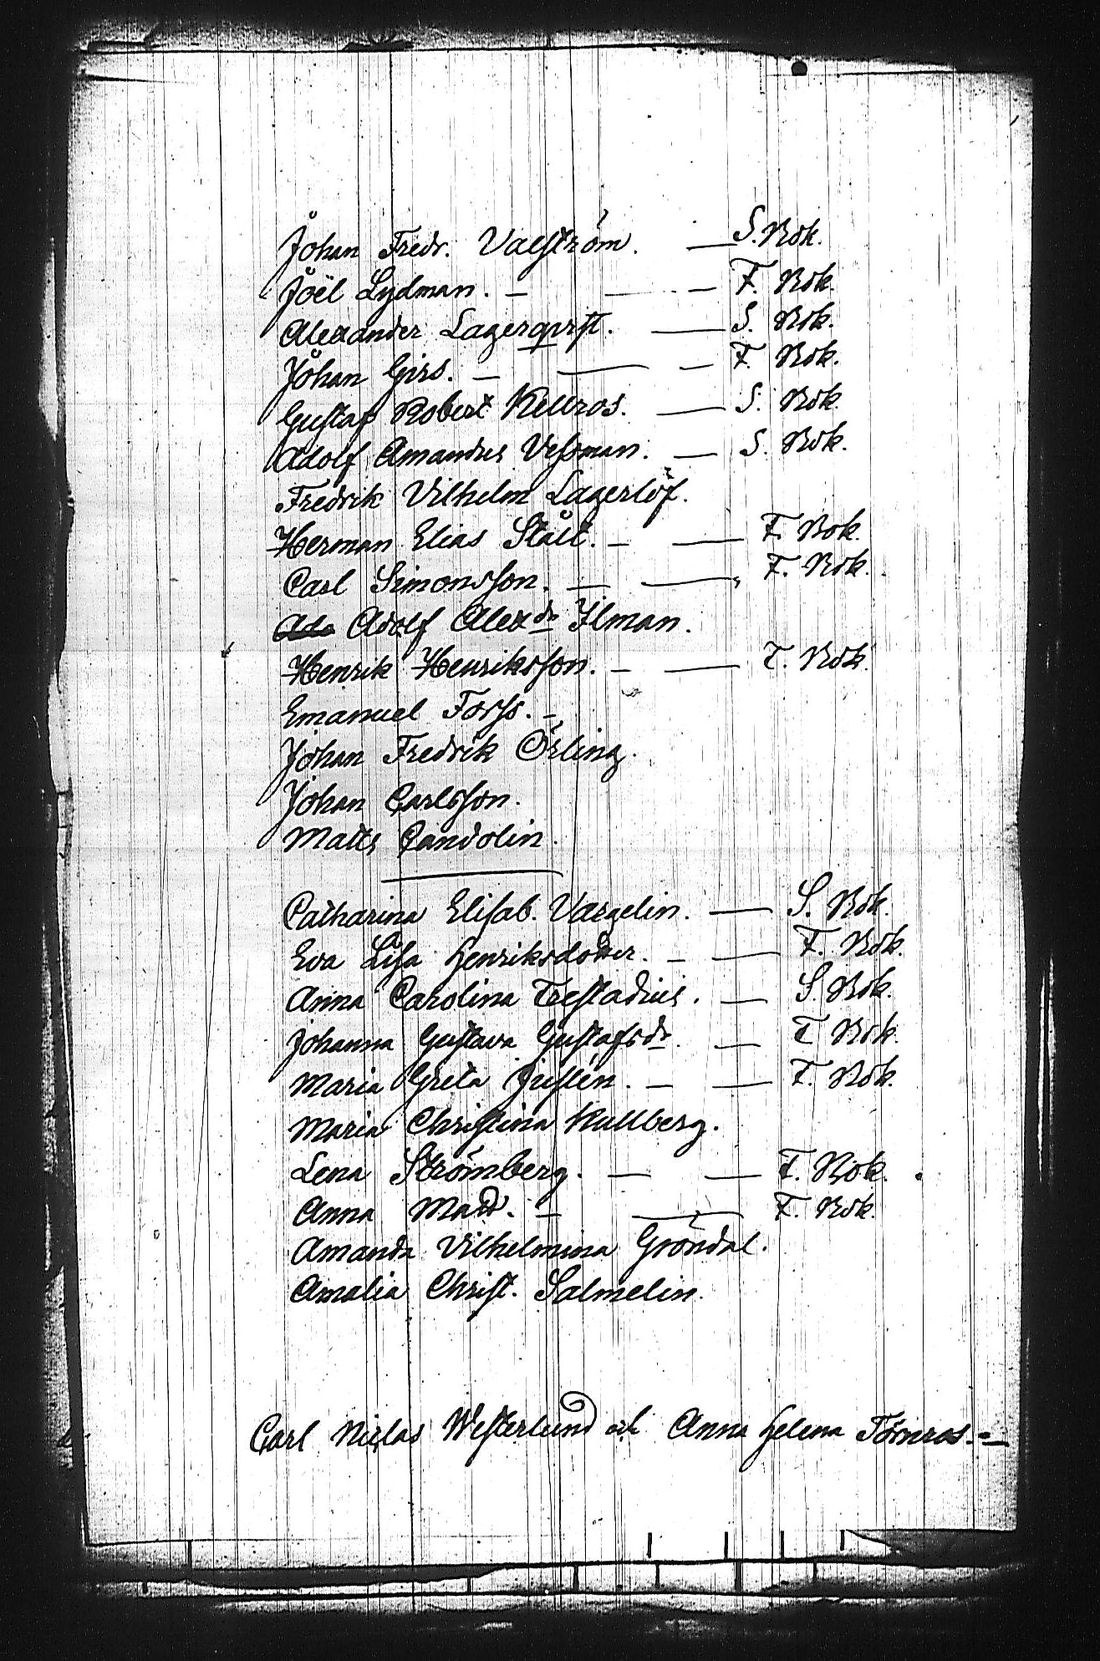 Johan Fredr. Valström. — S. Bok.
Joël Lydman. — — — F. Bok.
Alexander Lagerqvist. — S. Bok.
Johan Girs. — — — F. Bok.
Gustaf Robert Kellros. — S. Bok.
Adolf Amandus Vessman. — S. Bok.
Fredrik Vilhelm Lagerlöf.
Herman Elias Ståhl. — — F. Bok.
Carl Simonsson. — — F. Bok.
Adolf Alexdr Ilman.
Henrik Henriksson. — — F. Bok
Emanuel Forss. —
Johan Fredrik Örling.
Johan Carlsson.
Matts Candolin.
Catharina Elisab. Vargelin. — S. Bok.
Eva Lisa Henriksdotter. — — F. Bok.
Anna Carolina — S. Bok.
Johanna Gustava Gustafsdr. — F. Bok.
Maria Greta Justén. — — F. Bok.
Maria Christina Kullberg.
Lena Strömberg. — — F. Bok.
Anna — — F. Bok.
Amanda Vilhelmina Gröndal.
Amalia Christ. Salmelin.
Carl Niclas Westerlund och Anna Helena Törnros. —